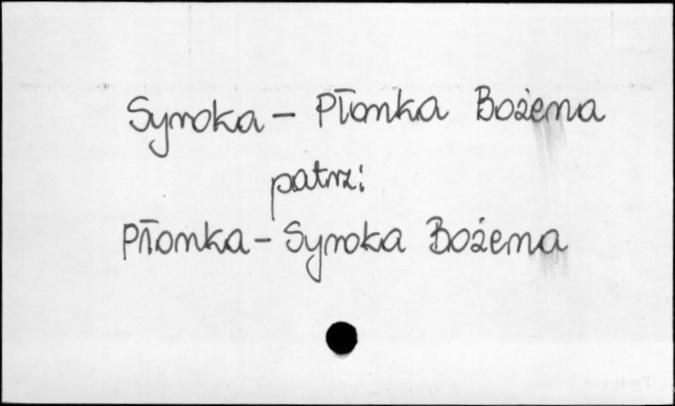 Syroka - Płonka Bożena
patrz:
Płonka - Syroka Bożena